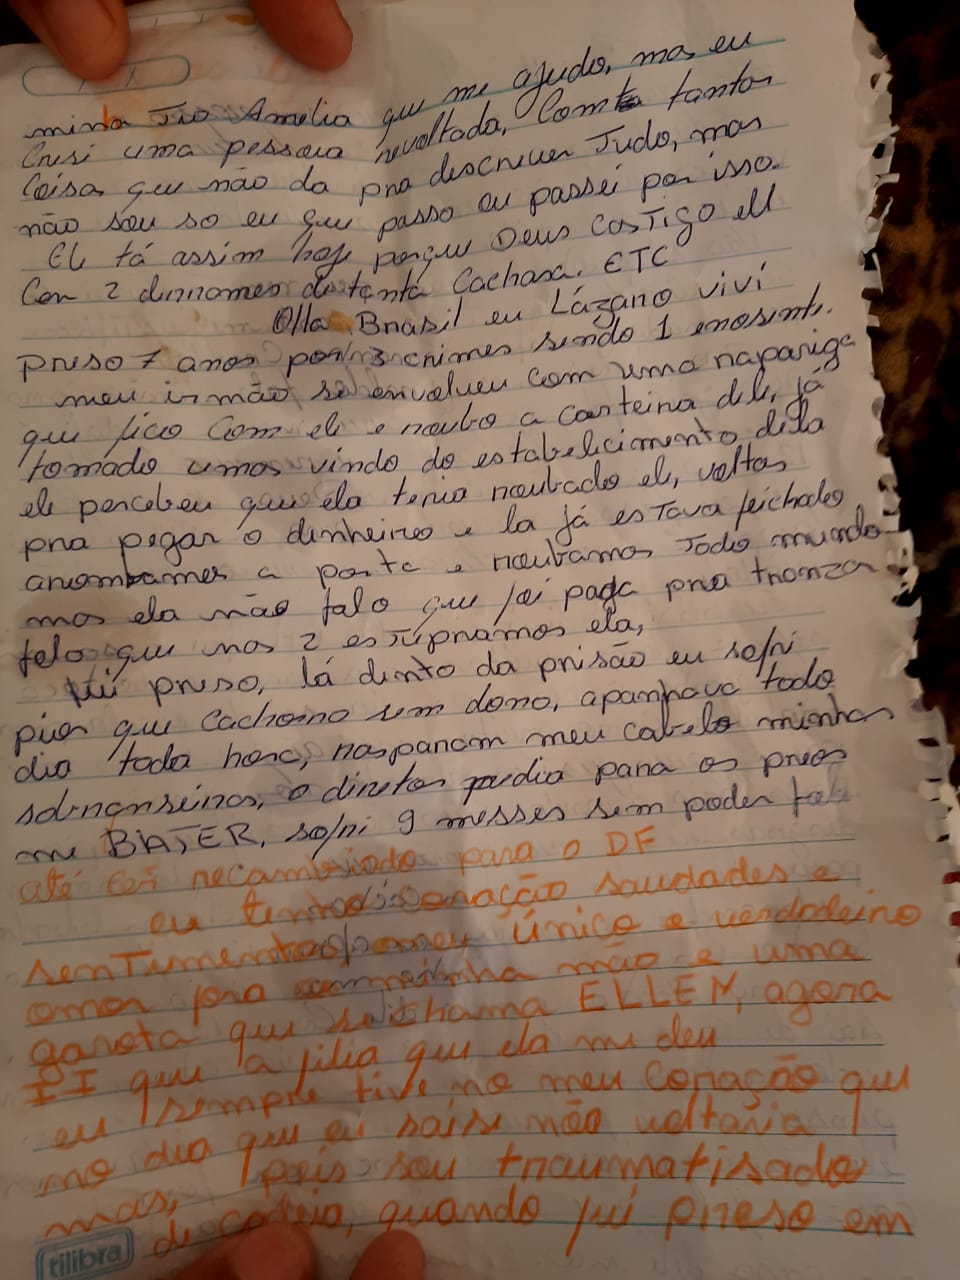 minha Tia Amelia que me ajudo, mas eu
Cresi uma pessoua revoltada, Com tantas
Coisa que não da pra descrever Tudo, mas
não sou so eu que passo ou passei por isso.
Ele tá assim hoje porque Deus CasTigo ell
Con 2 dirrames de tanta Cachasa. ETC
Olla Brasil eu Lázaro vivi
preso 7 anos por 3 crimes sendo 1 enosente.
meu irmão se envolveu com uma rapariga
que fico Com ele e roubo a carteira dele, já
tomado umas vindo do estabelicimento dela
ele percebeu que ela teria roubado ele, voltas
pra pegar o dinheiro e la já estava feichado
arombamos a porta e roubamos Todo mundo
mas ela não falo que foi paga pra tranzar
falo que nos 2 esTupramos ela,
fui preso, lá dento da prisão eu sofri
pior que Cachorro sem dono, apanhava todo
dia toda hora, rasparam meu cabelo minhas
sobransseiras, o diretor pedia para os preos
me BATER, sofri 9 messes sem poder
até ser recambiado para o DF
eu tento coração saudades e
senTimentos meu único e verdadeiro
amor pra minha mão e uma
garota que se chama ELLEM, agora
II que a filia que ela me deu
eu sempre tive no meu Coração que
no dia que eu saise não voltaria
mas, pois sou traumatisado
de cadeia, quando fui preso em
tilibra